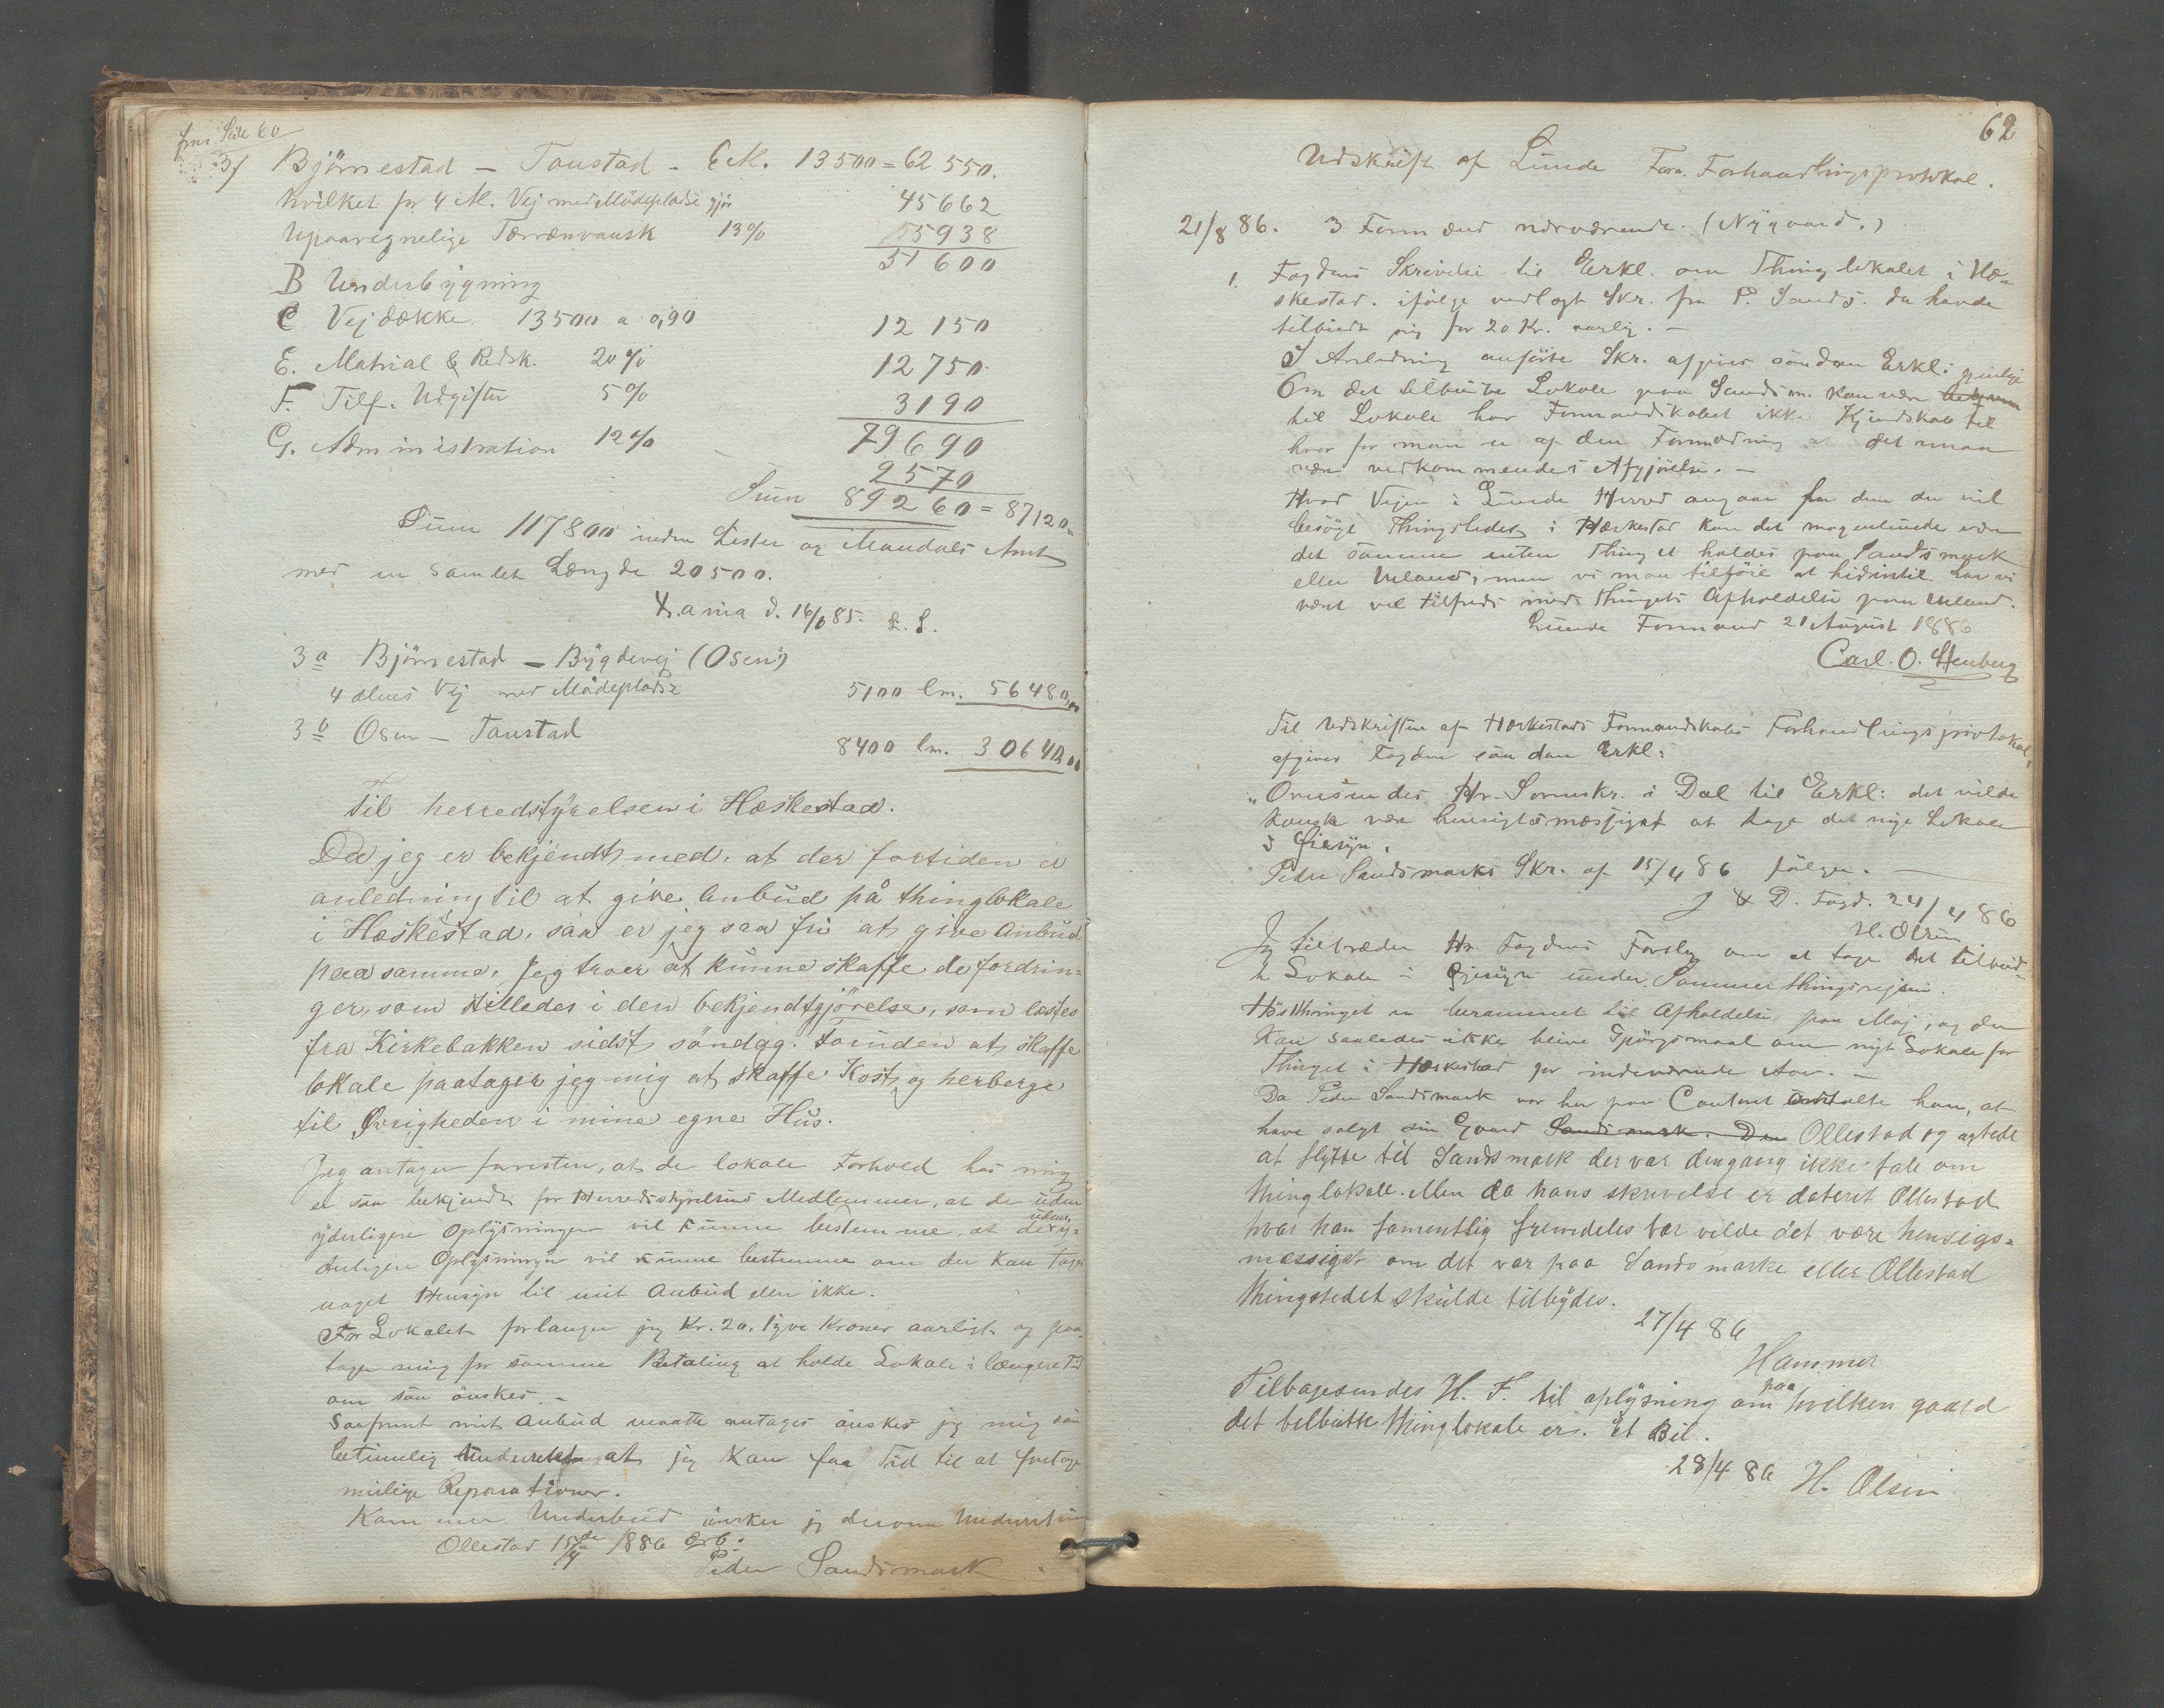 fra Side 60
3) Björnestad – Toustad – 6 M. 13500 = 62 550.
hvilket for 4 M. Vej med Mödeplads gjör 45662
Upaaregnelige 13% 5938
51 600
B Underbygning
C Vejdække 13500 a 0,90 12 150
E. Matrial & Redsk. 20% 12750
F. Tilf. Udgifter 5% 3190
79690
G. Administration 12% 9570
Sum 89260 = 87120
Sum 117800 inden Lister og Mandals Amt
med en samlet Længde 20500.
X.ania d. 16/6 85. L. S.
3a Björnestad – Bygdevej (Osen)
4 alens Vej med Mödeplads 5100 lm. 56480,00
3b Osen – Toustad
8400 lm. 30640,00
Til herredstyrelsen i Heskestad.
Da jeg er bekjendt med, at der fortiden er
anledning til at give anbud på thinglokale
i Heskestad, saa er jeg saa fri at give Anbud
paa samme. Jeg troer at kunne skaffe de fordrin=
ger, som stilledes i den bekjendtgjörelse, som læstes
fra Kirkebakken sidst söndag. Foruden at skaffe
lokale paatager jeg mig at skaffe Kost og herberge
til Øvrigheden i mine egne Hus.
Jeg antager forresten, at de lokale Forhold hos mig
er saa bekjendt for Herredsstyrelsens Medlemmer, at de uden
yderligere Oplysninger vil kunne bestemme, at de uden y=
derligere Oplysninger vil kunne bestemme om der kan tages
noget Hensyn til mit Anbud eller ikke.
For Lokalet forlanger jeg Kr. 20. tyve Kroner aarligt og paa=
tager mig for samme Betaling at holde Lokale i længere Tid
om saa önskes. –
Saafremt mit Anbud maatte antages önskes jeg mig saa
betimelig underrettet at jeg kan faa Tid til at foretage
mulige Reparationer.
Kommer Underbud önsker jeg derom Underretning
Ollestad 15de/4 1886 Erb:
Peder Sandsmark
62
Udskrift af Lunde Form. Forhandlingsprotokol.
21/8 86. 3 Formænd nærværende. (Nygaard.)
1. Fogdens Skrivelse til Erkl. om Thinglokalet i He=
skestad. ifölge vedlagt Skr. fra P. Sands. da havde
tilbudt sig for 20 Kr. aarlig. –
I Anledning anförte Skr. afgives saadan Erkl:
Om det tilbudte Lokale paa Sandsm. kan være
til Lokale har Formandskabet ikke Kjendskab til
hvorfor man er af den Formodning at det maa
være vedkommendes Afgjörelse. –
Hvad Vejen i Lunde Herred angaar for dem der vil
besöge Thingstedet i Heskestad kan det mageligende være
det samme enten Thinget holdes paa Sandsmark
eller Ueland, men vi maa tilföie at hidindtil har vi
været vel tilfreds med Thingets Afholdelse paa Ueland.
Lunde Formand 21 August 1886
Carl. O. Stenberg
Til Udskriften af Heskestads Formandskabs Forhandlingsprotokol,
afgiver Fogden saadan Erkl:
"Oversendes Hr. Sorenskr. i Dal til Erkl: det vilde
kanske være hensigtsmæssigst at tage det nye Lokale
i Öiesyn.
Peder Sandsmarks Skr. af 15/4 86 fölger. –
J & D. Fogd. 24/4 86
H. Olsen
Jeg tiltræder Hr. Fogdens Forslag om at tage det tilbud=
te Lokale i Öjesyn under Sommerthingsrejsen.
Höstthinget er berammet til Afholdelse paa Moj, og der
kan saaledes ikke blive Spörgsmaal om nyt Lokale for
Thinget i Heskestad for indeværende Aar. –
Da Peder Sandsmark var her paa Contoret omtalte han, at
have solgt sin Gaard Sandsmark. Den Ollestad og agtede
at flytte til Sandsmark der var dengang ikke tale om
thinglokale. Men da hans skrivelse er dateret Ollestad
hvor han formentlig fremdeles bor vilde det være hensigs=
mæssigst om det var paa Sandsmark eller Ollestad
thingstedet skulde tilbydes.
27/4 86
Hammer
Tilbagesendes H. F. til oplysning om paa hvilken gaard
det tilbudte thinglokale er. Et Bil.
28/4 86 H. Olsen